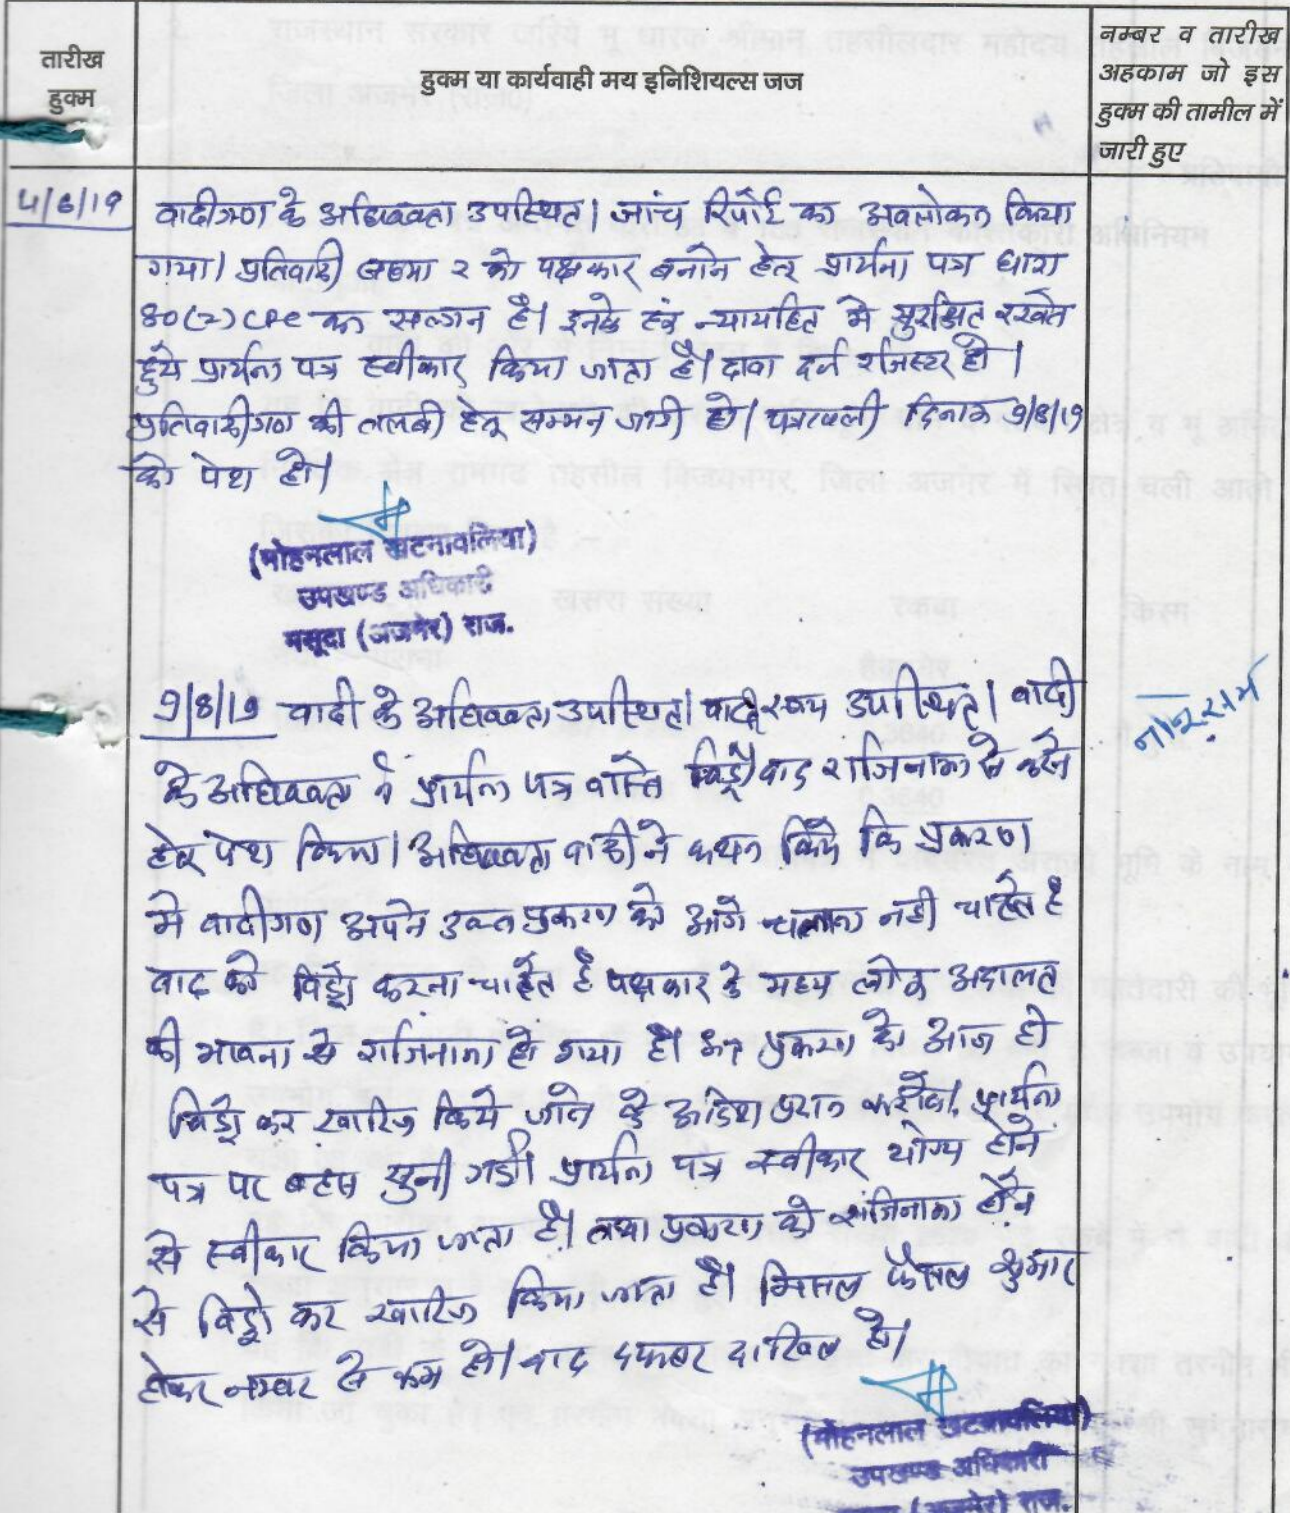 तारीख
हुक्म
हुक्म या कार्यवाही मय इनिशियल्स जज
नम्बर व तारीख
अहकाम जो इस
हुक्म की तामील में
जारी हुए
4/6/19
वादीगण के अधिवक्ता उपस्थित। जांच रिपोर्ट का अवलोकन किया
गया। प्रतिवादी संख्या 2 को पक्षकार बनाने हेतु प्रार्थना पत्र धारा
80(2) CPC का संलग्न है। इनके हक न्यायहित मे सुरक्षित रखते
हुये प्रार्थना पत्र स्वीकार किया जाता है। दावा दर्ज रजिस्टर हो।
प्रतिवादीगण की तलबी हेतु सम्मन जारी हो। पत्रावली दिनांक 9/8/19
को पेश हो।
(मोहनलाल खटनावलिया)
उपखण्ड अधिकारी
मसूदा (अजमेर) राज.
9/8/19 वादी के अधिवक्ता उपस्थित। वादी स्वयं उपस्थित। वादी
के अधिवक्ता ने प्रार्थना पत्र वास्ते विड्रो वाद राजिनामा से करने
हेतु पेश किया। अधिवक्ता वादी ने कथन किये कि प्रकरण
मे वादीगण अपने उक्त प्रकरण को आगे चलाना नही चाहते है
वाद को विड्रो करना चाहते है पक्षकार के मध्य लोक अदालत
की भावना से राजिनामा हो गया है। अतः प्रकरण को आज ही
विड्रो कर खारिज किये जाने के आदेश प्रदान करावें। प्रार्थना
पत्र पर बहस सुनी गई। प्रार्थना पत्र स्वीकार योग्य होने
से स्वीकार किया जाता है। तथा प्रकरण को राजिनामा होने
से विड्रो कर खारिज किया जाता है। मिसल फैसल शुमार
होकर नम्बर से कम हो। बाद दफ्तर दाखिल हो।
(मोहनलाल खटनावलिया)
उपखण्ड अधिकारी
(अजमेर) राज.